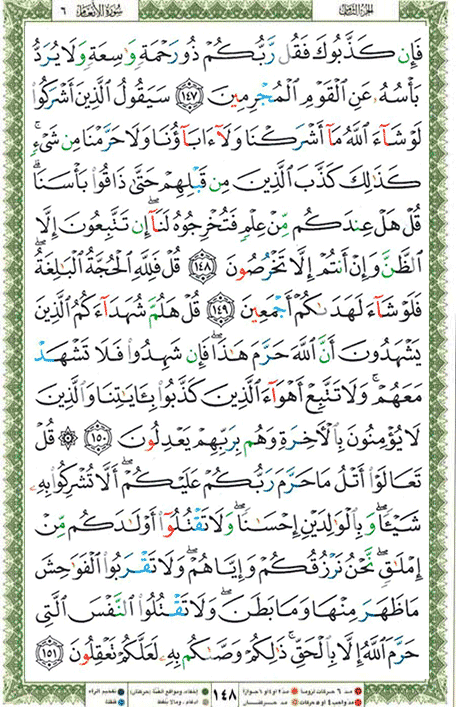 الجزء الثامن سورة الأنعام ٦
فَإِن كَذَّبُوكَ فَقُل رَّبُّكُمْ ذُو رَحْمَةٍ وَٰسِعَةٍ وَلَا يُرَدُّ
بَأْسُهُۥ عَنِ ٱلْقَوْمِ ٱلْمُجْرِمِينَ ١٤٧ سَيَقُولُ ٱلَّذِينَ أَشْرَكُوا۟
لَوْ شَآءَ ٱللَّهُ مَآ أَشْرَكْنَا وَلَآ ءَابَآؤُنَا وَلَا حَرَّمْنَا مِن شَىْءٍ ۚ
كَذَٰلِكَ كَذَّبَ ٱلَّذِينَ مِن قَبْلِهِمْ حَتَّىٰ ذَاقُوا۟ بَأْسَنَا ۗ
قُلْ هَلْ عِندَكُم مِّنْ عِلْمٍ فَتُخْرِجُوهُ لَنَآ ۖ إِن تَتَّبِعُونَ إِلَّا
ٱلظَّنَّ وَإِنْ أَنتُمْ إِلَّا تَخْرُصُونَ ١٤٨ قُلْ فَلِلَّهِ ٱلْحُجَّةُ ٱلْبَٰلِغَةُ ۖ
فَلَوْ شَآءَ لَهَدَىٰكُمْ أَجْمَعِينَ ١٤٩ قُلْ هَلُمَّ شُهَدَآءَكُمُ ٱلَّذِينَ
يَشْهَدُونَ أَنَّ ٱللَّهَ حَرَّمَ هَٰذَا ۖ فَإِن شَهِدُوا۟ فَلَا تَشْهَدْ
مَعَهُمْ ۚ وَلَا تَتَّبِعْ أَهْوَآءَ ٱلَّذِينَ كَذَّبُوا۟ بِـَٔايَٰتِنَا وَٱلَّذِينَ
لَا يُؤْمِنُونَ بِٱلْءَاخِرَةِ وَهُم بِرَبِّهِمْ يَعْدِلُونَ ١٥٠ ۞ قُلْ
تَعَالَوْا۟ أَتْلُ مَا حَرَّمَ رَبُّكُمْ عَلَيْكُمْ ۖ أَلَّا تُشْرِكُوا۟ بِهِۦ
شَيْـًٔا ۖ وَبِٱلْوَٰلِدَيْنِ إِحْسَٰنًا ۖ وَلَا تَقْتُلُوٓا۟ أَوْلَٰدَكُم مِّنْ
إِمْلَٰقٍ ۖ نَّحْنُ نَرْزُقُكُمْ وَإِيَّاهُمْ ۖ وَلَا تَقْرَبُوا۟ ٱلْفَوَٰحِشَ
مَا ظَهَرَ مِنْهَا وَمَا بَطَنَ ۖ وَلَا تَقْتُلُوا۟ ٱلنَّفْسَ ٱلَّتِى
حَرَّمَ ٱللَّهُ إِلَّا بِٱلْحَقِّ ۚ ذَٰلِكُمْ وَصَّىٰكُم بِهِۦ لَعَلَّكُمْ تَعْقِلُونَ ١٥١
مد ٦ حركات لزوماً مد ٢ أو ٤ أو ٦ جوازاً ١٤٨ إخفاء، ومواقع الغنة (حركتان) تفخيم الراء
مد واجب ٤ أو ٥ حركات مد حركتان إدغام، وما لا يلفظ قلقلة